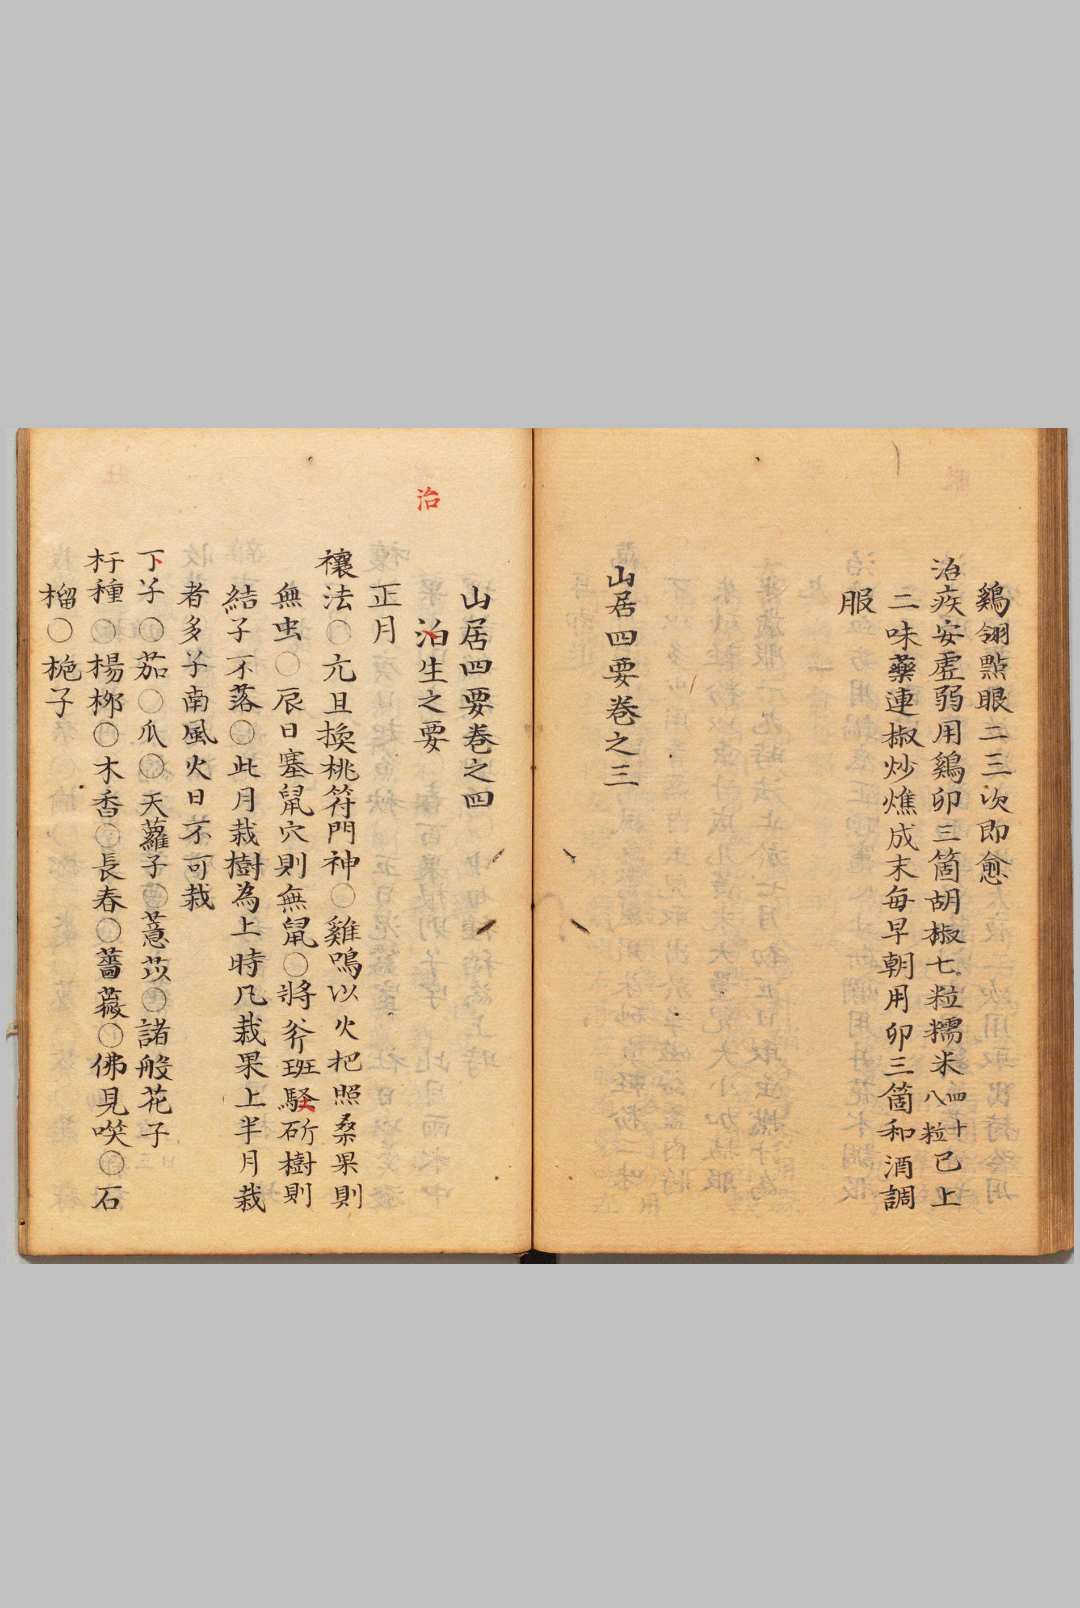 鷄翎點眼二三次即愈
治疾安虚弱用鷄卯三箇胡椒七粒糯米四十八粒已上
二味藥連椒炒燋成末每早朝用卯三箇和酒調
服
山居四要卷之三
山居四要卷之四
治
泊生之要
正月
禳法〇元旦換桃符門神〇雞鳴以火把照桑果則
無虫〇辰日塞鼠穴則無鼠〇將斧班駁斫樹則
結子不落〇此月栽樹為上時凡栽果上半月栽
者多子南風火日不可栽
下子〇茄〇瓜〇天蘿子〇薏苡〇諸般花子
扦種〇楊栁〇木香〇長春〇薔薇〇佛見咲〇石
榴〇栀子